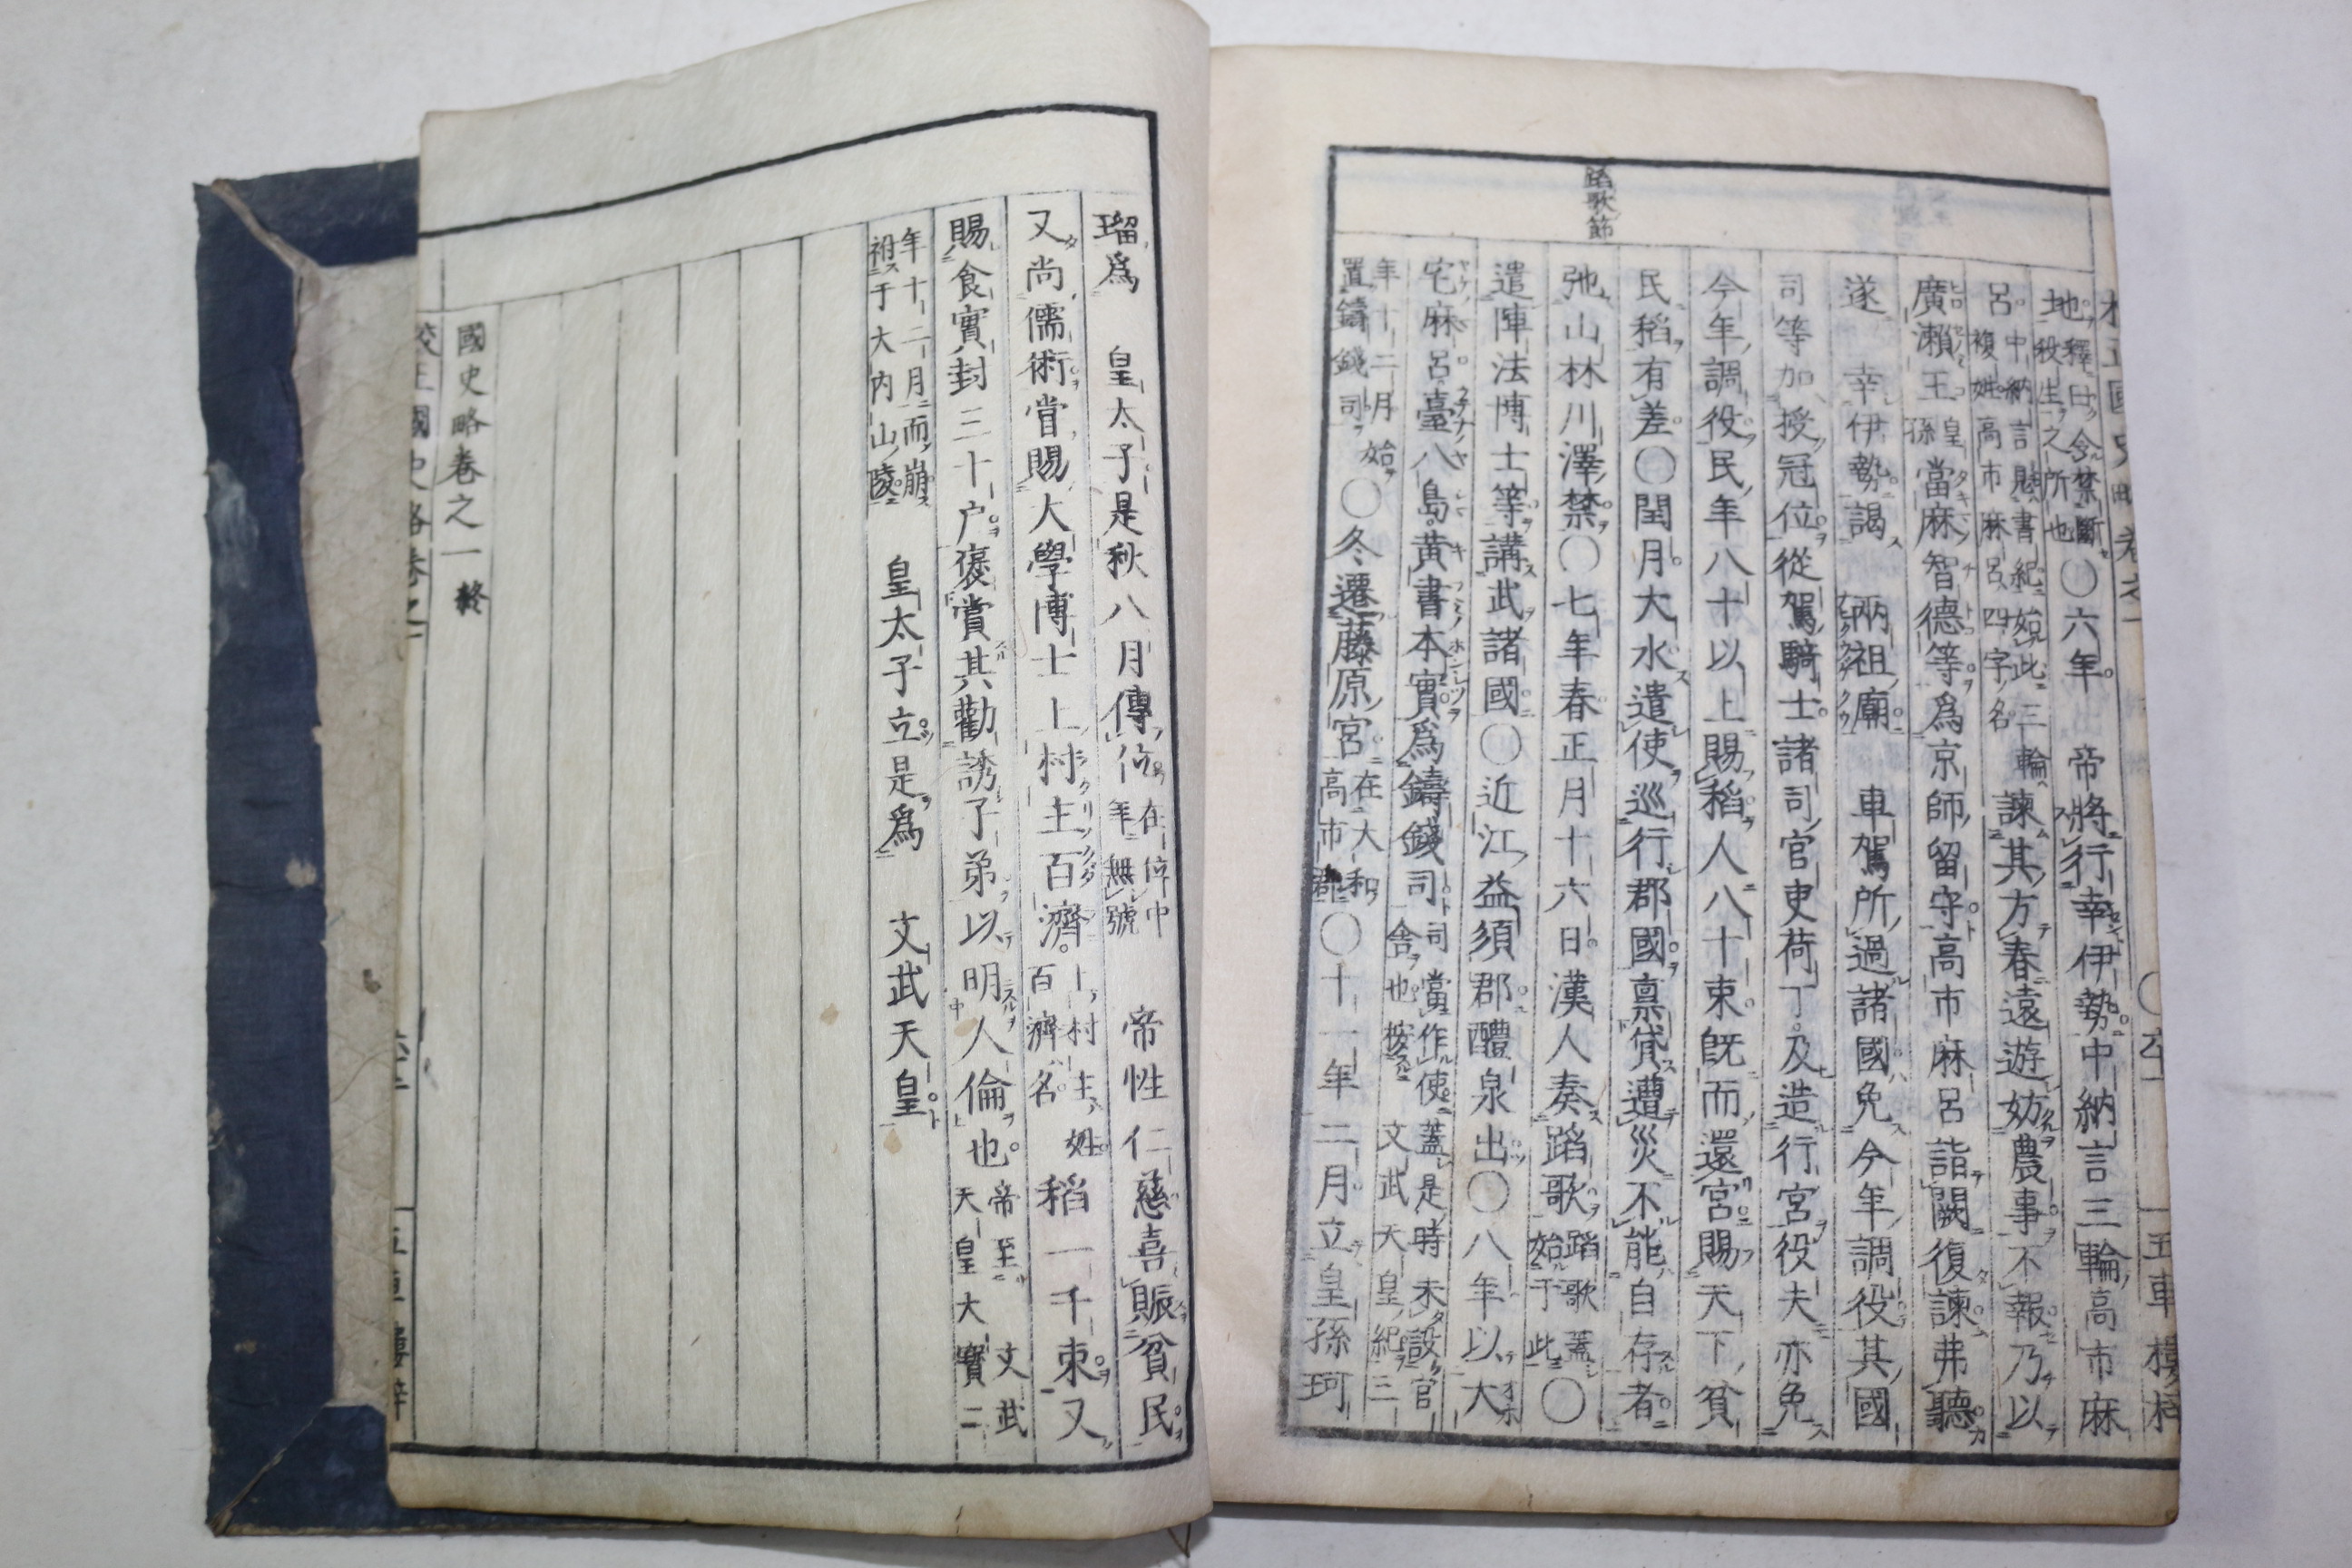 蹈歌節
地釋曰今禁斷殺生之所也〇六年 帝將行幸伊勢中納言三輪高市麻
呂中納言見書紀始此三輪複姓高市麻呂四字名諫其方春遠遊妨農事不報乃以
廣瀨王皇孫當麻智德等爲京師留守高市麻呂詣闕復諫弗聽
遂 幸伊勢謁 兩祖廟 車駕所過諸國免今年調役其國
司等加授冠位從駕騎士諸司官吏荷丁及造行宮役夫亦免
今年調役民年八十以上賜稻人八十束旣而還宮賜天下貧
民稻有差〇閏月大水遣使巡行郡國禀貸遭災不能自存者
弛山林川澤禁〇七年春正月十六日漢人奏蹈歌蹈歌蓋始于此〇
遣陣法博士等講武諸國〇近江益須郡醴泉出〇八年以大
宅麻呂臺八島黃書本實爲鑄錢司司當作使蓋是時未設官舍也按 文武天皇紀三
年十二月始置鑄錢司〇冬遷藤原宮在大和高市郡〇十一年二月立皇孫珂
瑠爲 皇太子是秋八月傳位在位中年無號 帝性仁慈喜賑貧民
又尚儒術嘗賜大學博士上村主百濟上村主姓百濟名稻一千束又
賜食實封三十户褒賞其勸誘子弟以明人倫也帝至 文武天皇大寶二
年十二月而崩祔于大内山陵 皇太子立是爲 文武天皇
國史略卷之一終